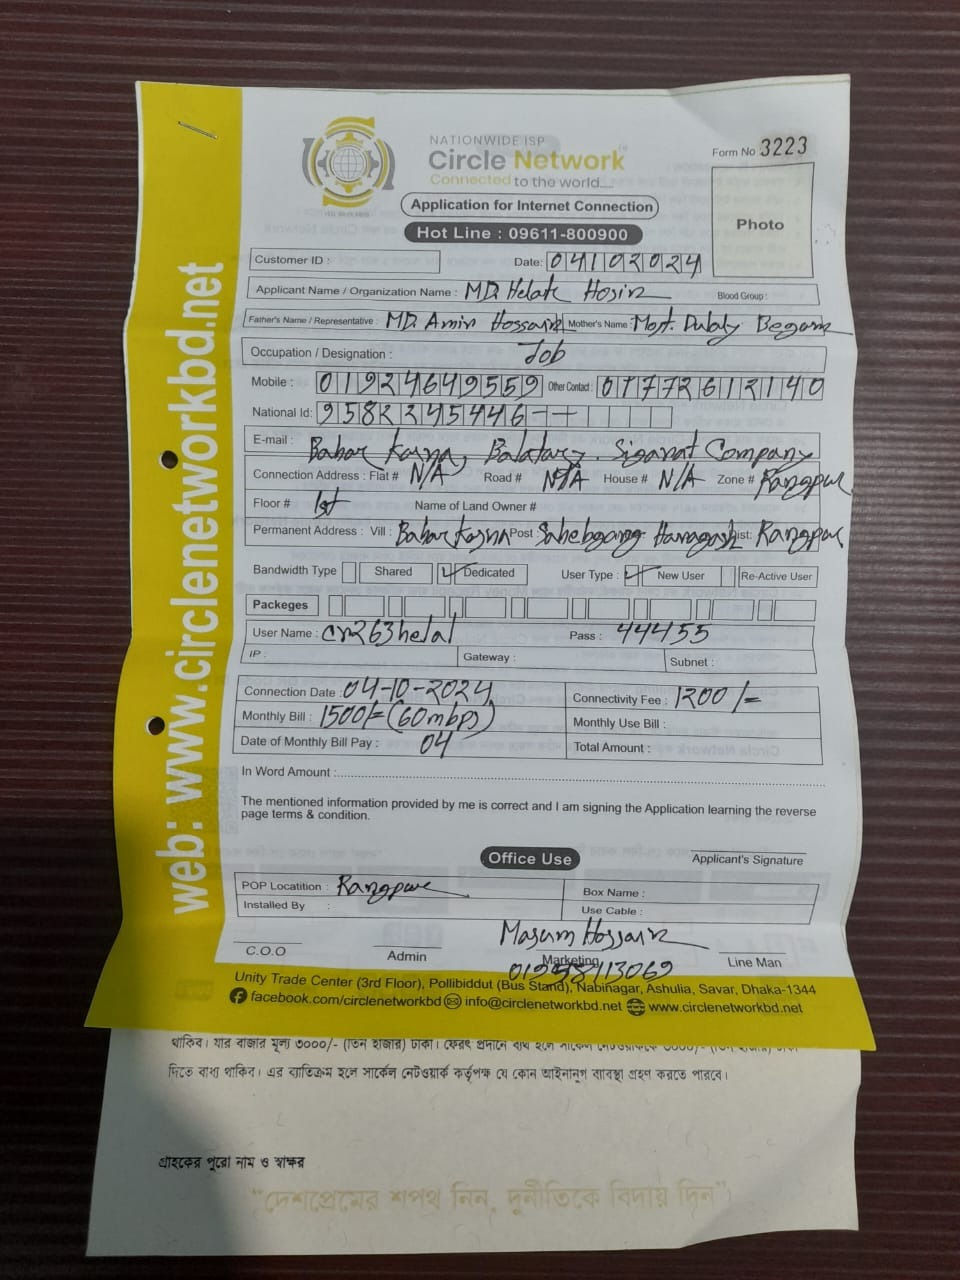 NATIONWIDE ISP
Circle Network
Connected to the world....
Form No 3223
Application for Internet Connection
Hot Line : 09611-800900
Photo
Customer ID :
Date: 04102024
Applicant Name / Organization Name : MD. Helale Hosin Blood Group :
Father's Name / Representative : MD. Amin Hossain Mother's Name : Most. Dulaly Begam
Occupation / Designation : Job
Mobile : 01924649559 Other Contact : 01772612140
National Id: 9582245446--
E-mail : Bahar Kasna, Balatary. Siganat Company
Connection Address : Flat # N/A Road # N/A House # N/A Zone # Rangpur
Floor # 1st Name of Land Owner #
Permanent Address : Vill : Bahar Kasna Post Sahebgang Haragash Dist: Rangpur
Bandwidth Type Shared Dedicated User Type : New User Re-Active User
Packeges
User Name : cn263helal Pass : 44455
IP : Gateway : Subnet :
Connection Date : 04-10-2024 Connectivity Fee : 1200/=
Monthly Bill : 1500/= (60mbps) Monthly Use Bill :
Date of Monthly Bill Pay : 04 Total Amount :
In Word Amount :
The mentioned information provided by me is correct and I am signing the Application learning the reverse
page terms & condition.
Applicant's Signature
Office Use
POP Locatition : Rangpur Box Name :
Installed By : Use Cable :
Masum Hossain
C.O.O Admin Marketing Line Man
Unity Trade Center (3rd Floor), Pollibiddut (Bus Stand), Nabinagar, Ashulia, Savar, Dhaka-1344
facebook.com/circlenetworkbd info@circlenetworkbd.net www.circlenetworkbd.net
web: www.circlenetworkbd.net
থাকিব। যার বাজার মূল্য ৩০০০/- (তিন হাজার) টাকা। ফেরৎ প্রদানে ব্যর্থ হলে সার্কেল নেটওয়ার্ককে ৩০০০/- (তিন হাজার) টাকা
দিতে বাধ্য থাকিব। এর ব্যতিক্রম হলে সার্কেল নেটওয়ার্ক কর্তৃপক্ষ যে কোন আইনানুগ ব্যবস্থা গ্রহণ করতে পারবে।
গ্রাহকের পুরো নাম ও স্বাক্ষর
“দেশপ্রেমের শপথ নিন, দুর্নীতিকে বিদায় দিন”